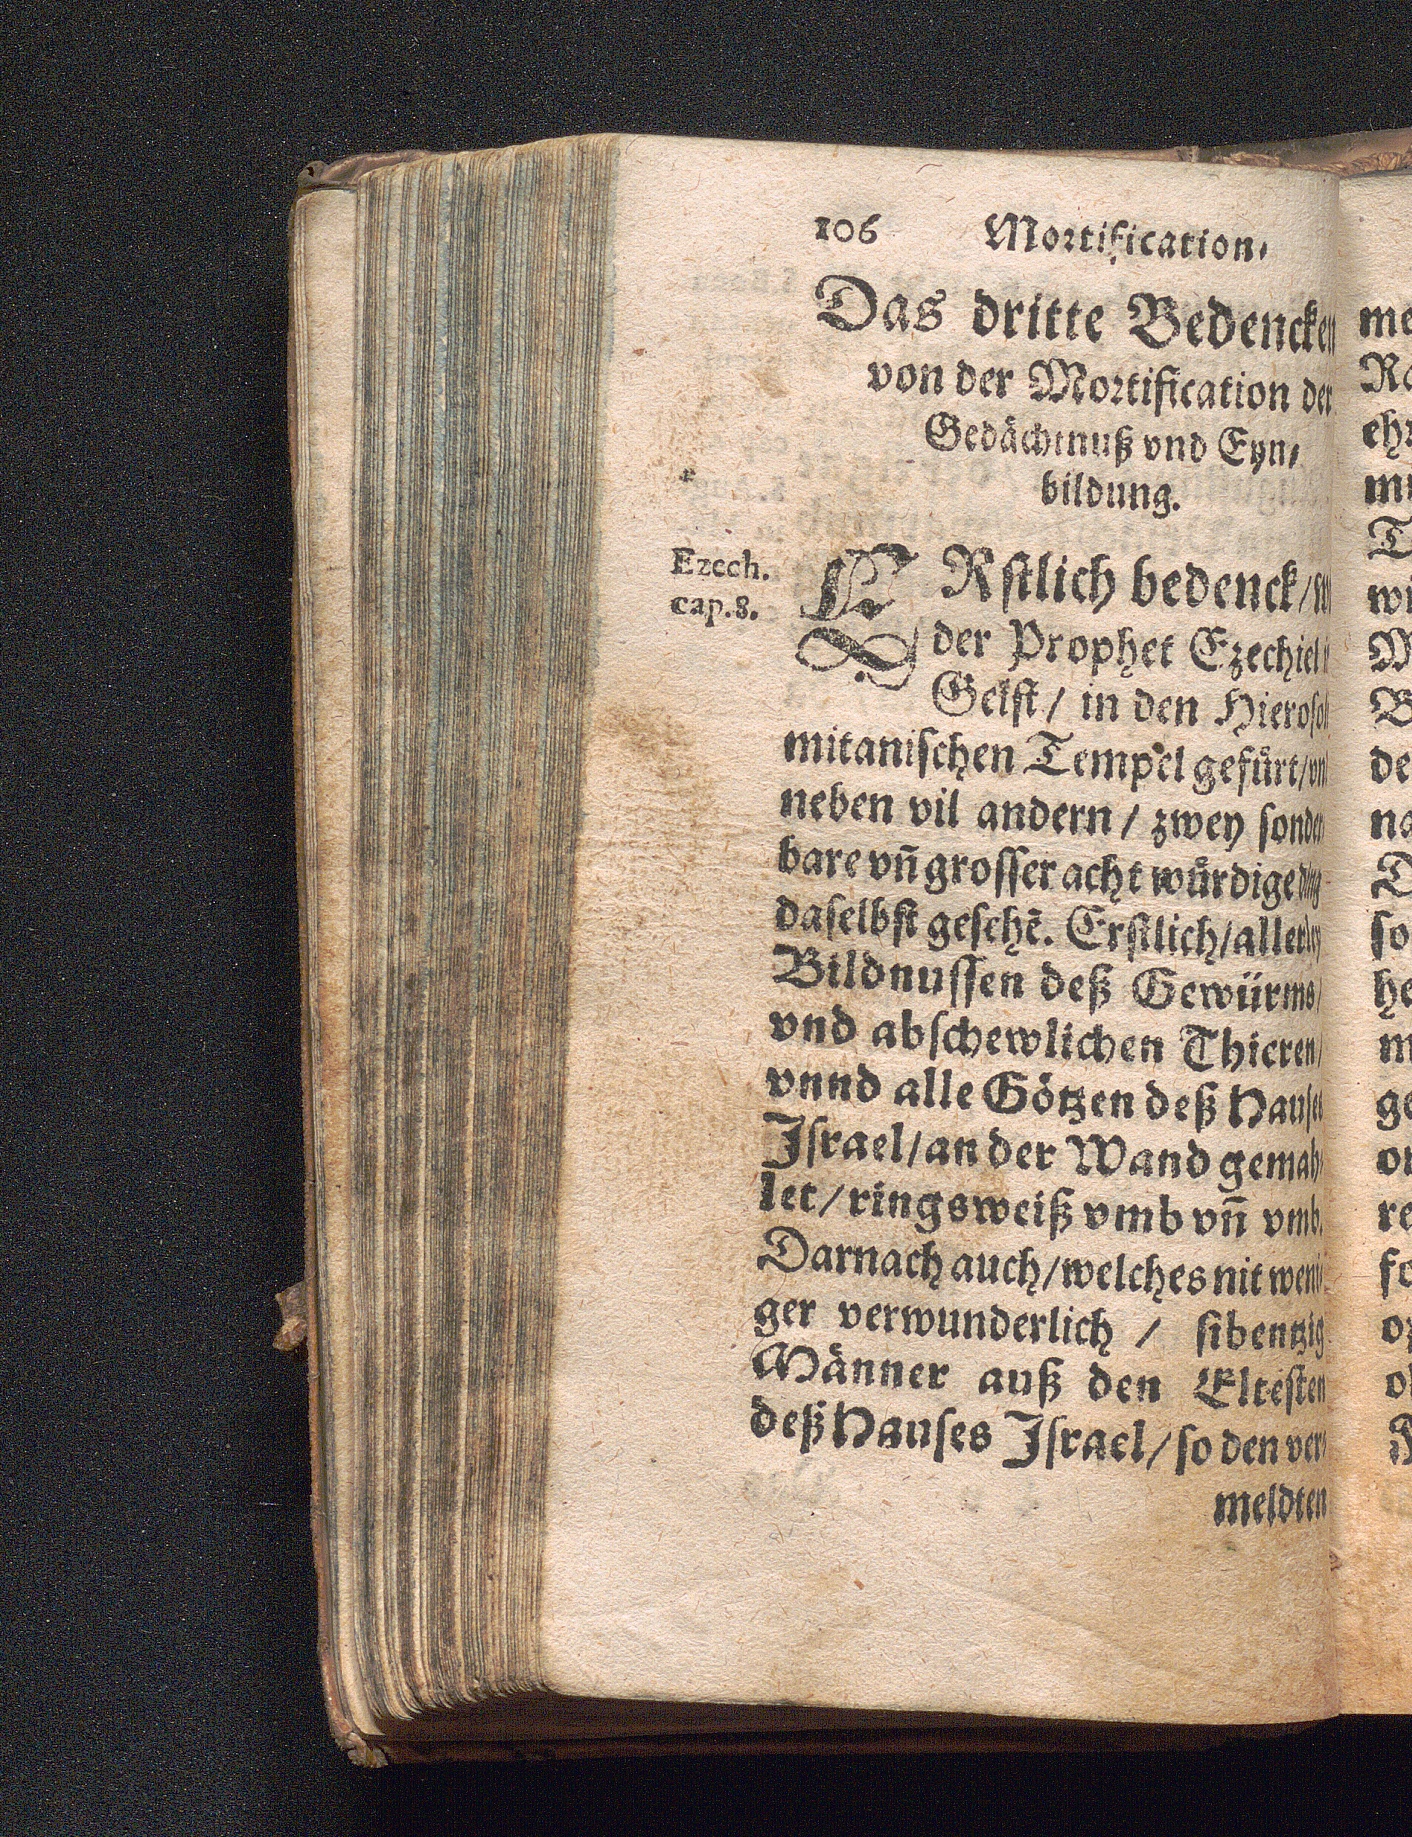 106 Mortification.
Das dritte Bedencken
von der Mortification der
Gedächtnuß vnd Eyn⸗
bildung.
Ezech.
cap.8.
ERstlich bedenck/
der Prophet Ezechiel
Geist / in den Hierosoli
mitanischen Tempel gefürt/vnd
neben vil andern / zwey sonder
bare vn̄ grosser acht würdige ding
daselbst gesehẽ. Erstlich/allerley
Bildnussen deß Gewürms/
vnd abschewlichen Thieren/
vnnd alle Götzen deß Hauses
Israel/an der Wand gemah⸗
let/ringsweiß vmb vn̄ vmb.
Darnach auch/welches nit weni⸗
ger verwunderlich / sibentzig
Männer auß den Eltesten
deß Hauses Israel/so den ver⸗
meldten